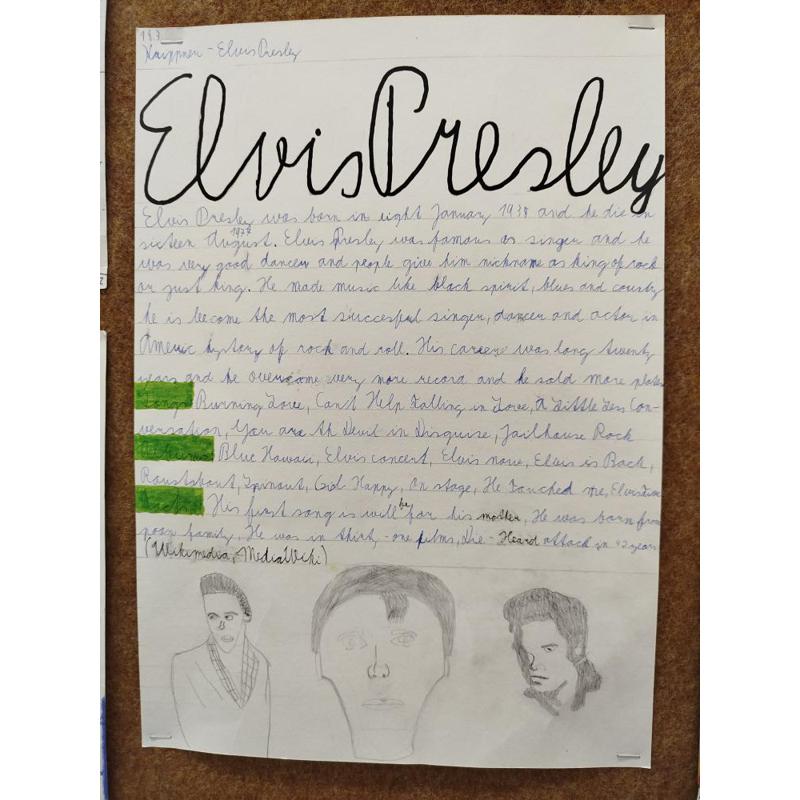 Elvis Presley
Elvis Presley
Elvis Presley was born in eight January 1935 and he die in
sixteen August 1977. Elvis Presley was famous as singer and he
was very good dancer and people give him nickname as king of rock
or just king. He made music like black spirit, blues and country
he is become the most succesful singer, dancer and actor in
Americ hystory of rock and roll. His carrere was long twenty
years and he overcame very more record and he sold more plates
Songs Burning Love, Can't Help Falling in Love, A Little Less Con-
versation, You are th Devil in Disguise, Jailhouse Rock
Albums Blue Hawaii, Elvis concert, Elvis now, Elvis is Back,
Roustabout, Spinout, Girl Happy, On stage, He Touched me, Elvis
His first song is will be for his mother, He was born from
poor family, He was in thirt,-one films, Die - Heard attack in 42 years
(Wikimedia, MediaWiki)